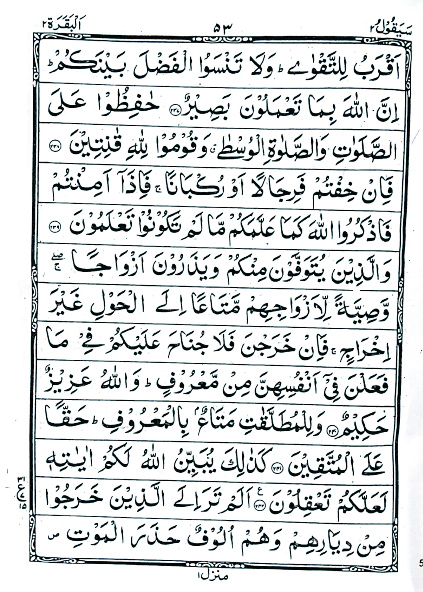 سَيَقُوْلُ ٢ ٥٣ اَلْبَقَرَة ٢
اَقْرَبُ لِلتَّقْوٰىؕ وَلَا تَنْسَوُا الْفَضْلَ بَيْنَكُمْؕ
اِنَّ اللّٰهَ بِمَا تَعْمَلُوْنَ بَصِيْرٌ ۝٢٣٧ حٰفِظُوْا عَلَى
الصَّلَوٰتِ وَالصَّلٰوةِ الْوُسْطٰىۗ وَقُوْمُوْا لِلّٰهِ قٰنِتِيْنَ ۝٢٣٨
فَاِنْ خِفْتُمْ فَرِجَالًا اَوْ رُكْبَانًاۚ فَاِذَاۤ اَمِنْتُمْ
فَاذْكُرُوا اللّٰهَ كَمَا عَلَّمَكُمْ مَّا لَمْ تَكُوْنُوْا تَعْلَمُوْنَ ۝٢٣٩
وَالَّذِيْنَ يُتَوَفَّوْنَ مِنْكُمْ وَيَذَرُوْنَ اَزْوَاجًاۖۚ
وَّصِيَّةً لِّاَزْوَاجِهِمْ مَّتَاعًا اِلَى الْحَوْلِ غَيْرَ
اِخْرَاجٍۚ فَاِنْ خَرَجْنَ فَلَا جُنَاحَ عَلَيْكُمْ فِيْ مَا
فَعَلْنَ فِيْۤ اَنْفُسِهِنَّ مِنْ مَّعْرُوْفٍؕ وَاللّٰهُ عَزِيْزٌ
حَكِيْمٌ ۝٢٤٠ وَلِلْمُطَلَّقٰتِ مَتَاعٌۢ بِالْمَعْرُوْفِؕ حَقًّا
عَلَى الْمُتَّقِيْنَ ۝٢٤١ كَذٰلِكَ يُبَيِّنُ اللّٰهُ لَكُمْ اٰيٰتِهٖ
لَعَلَّكُمْ تَعْقِلُوْنَ ۝٢٤٢ اَلَمْ تَرَ اِلَى الَّذِيْنَ خَرَجُوْا
مِنْ دِيَارِهِمْ وَهُمْ اُلُوْفٌ حَذَرَ الْمَوْتِ۪
منزل ١